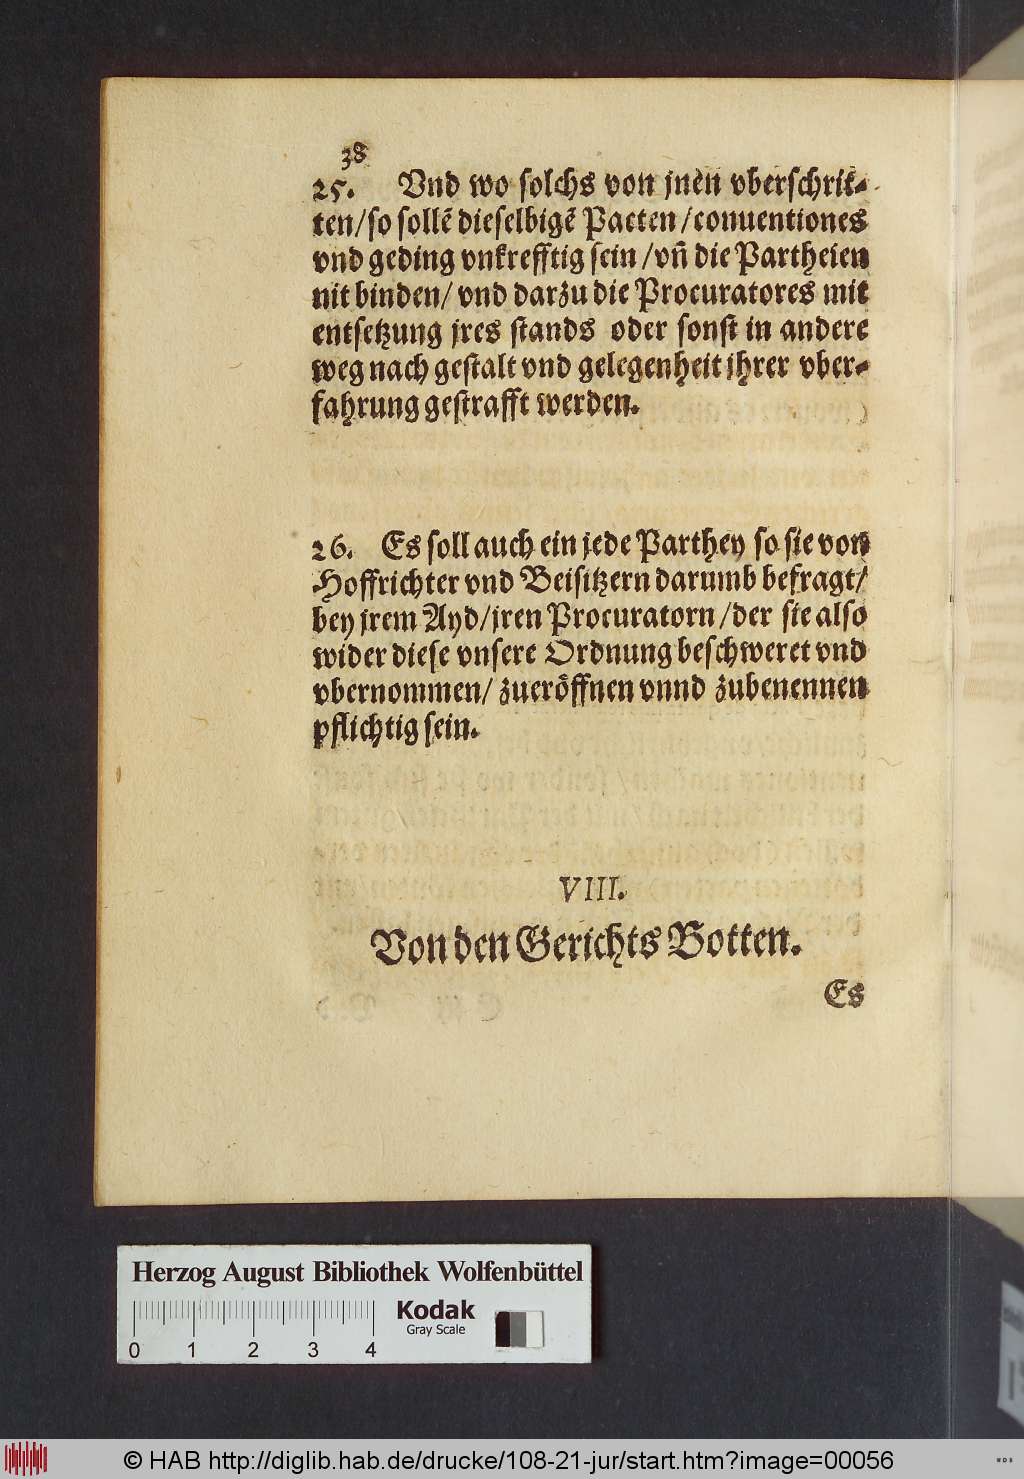 38
25. Vnd wo solchs von jnen vberschrit-
ten/so sollē dieselbigē Pacten/conuentiones
vnd geding vnkrefftig sein/vñ die Partheien
nit binden/ vnd darzu die Procuratores mit
entsetzung jres stands oder sonst in andere
weg nach gestalt vnd gelegenheit jhrer vber-
fahrung gestrafft werden.
26. Es soll auch ein jede Parthey so sie von
Hoffrichter vnd Beisitzern darumb befragt/
bey jrem Ayd/jren Procuratorn/der sie also
wider diese vnsere Ordnung beschweret vnd
vbernommen/ zueröffnen vnnd zubenennen
pflichtig sein.
VIII.
Von den Gerichts Botten.
Es
Herzog August Bibliothek Wolfenbüttel
Kodak
Gray Scale
0 1 2 3 4
© HAB http://diglib.hab.de/drucke/108-21-jur/start.htm?image=00056